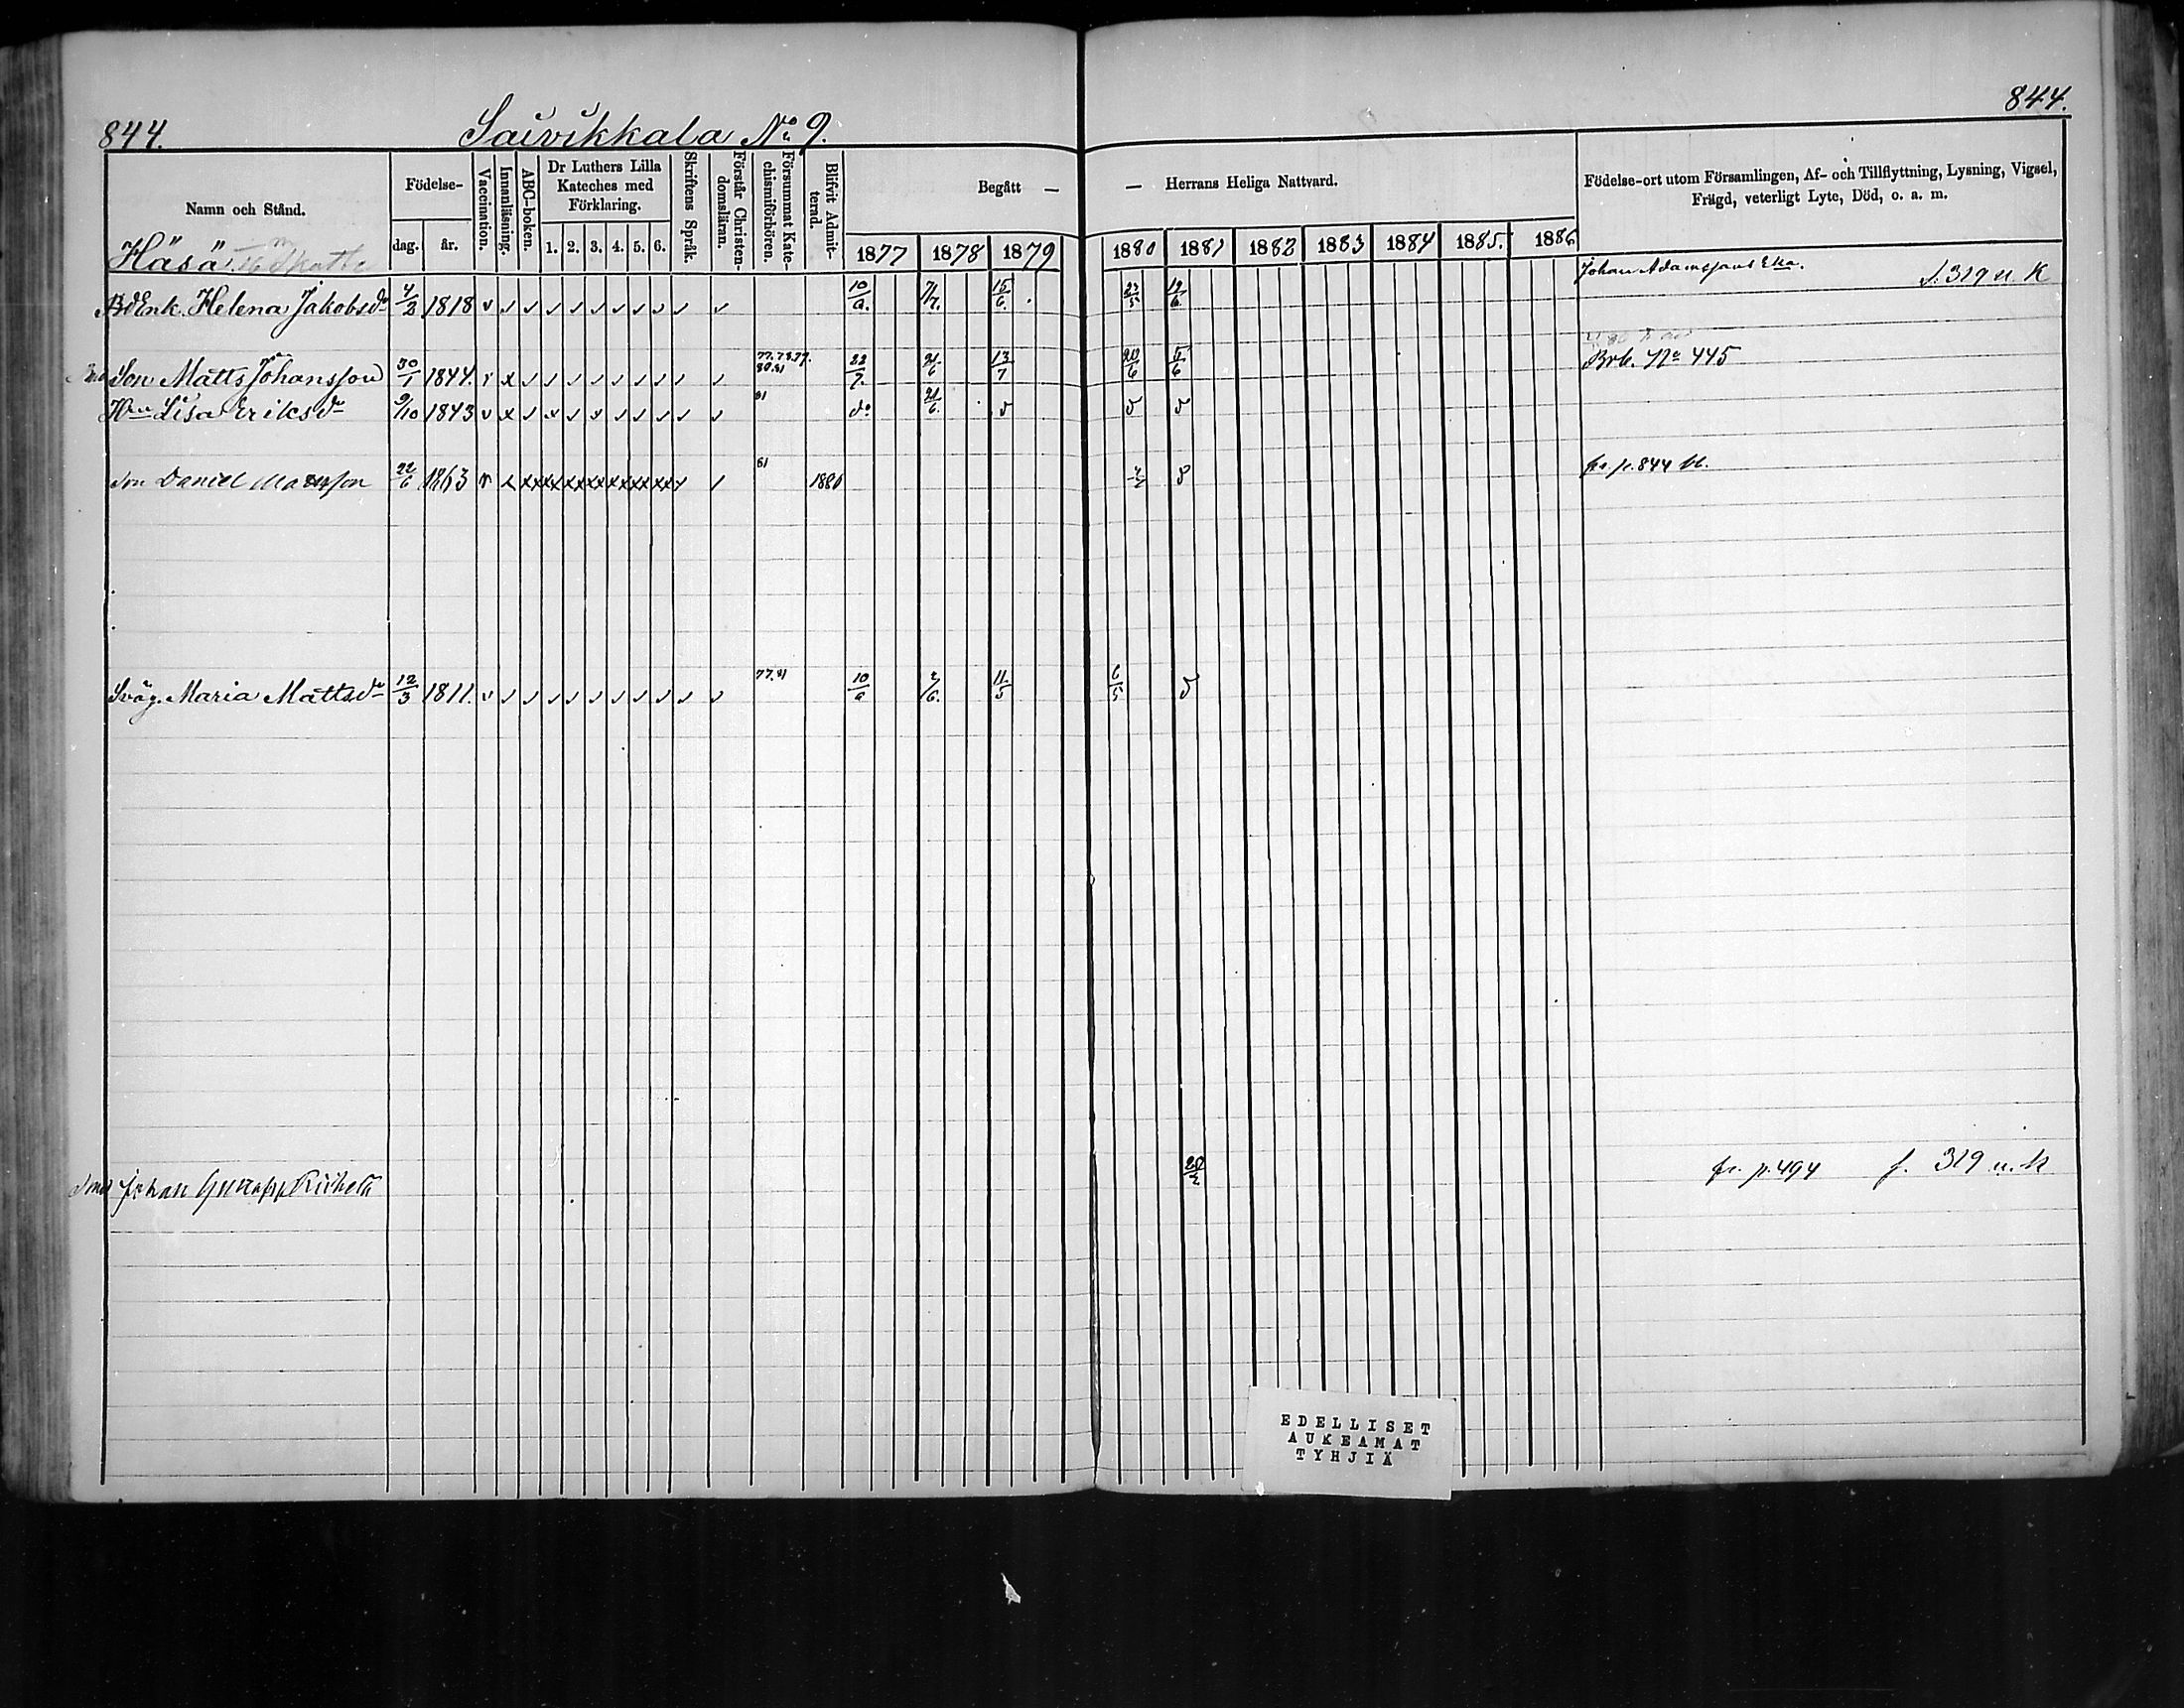 844.
Saivikkala No 9.
844.
Namn och Stånd.
Födelse-
dag.
år.
Vaccination.
Innanläsning.
ABC-boken.
Dr Luthers Lilla Kateches med Förklaring.
1. 2. 3. 4. 5. 6.
Skriftens Språk.
Förstår Christendomsläran.
Försummat Katechismiförhören.
Blifvit Admitterad.
Begått —
— Herrans Heliga Nattvard.
1877 1878 1879 1880 1881 1882 1883 1884 1885. 1886
Födelse-ort utom Församlingen, Af- och Tillflyttning, Lysning, Vigsel, Frägd, veterligt Lyte, Död, o. a. m.
Häsä
Johan Adamssons Eka. f. 319 u. K
BdEnk. Helena Jakobsdr 4/2 1818 v 10/6. 7/7. 15/6. 23/5 12/6.
Son Matts Johansson 30/1 1844. 77. 78. 79. 80. 81 22/7. 21/6 13/7 20/6 5/6 Brb. No 445
Hu Lisa Eriksdr 9/10 1843 v 81 do 21/6.
Son Daniel Mattsson 22/6 1863 81 1880 fr. p. 844 bl.
Sväg. Maria Mattsdr 12/3 1811. v 77. 81 10/6 2/6. 11/5 6/5
Johan fr. p. 494 f. 319 u. K
EDELLISET
AUKEAMAT
TYHJIÄ